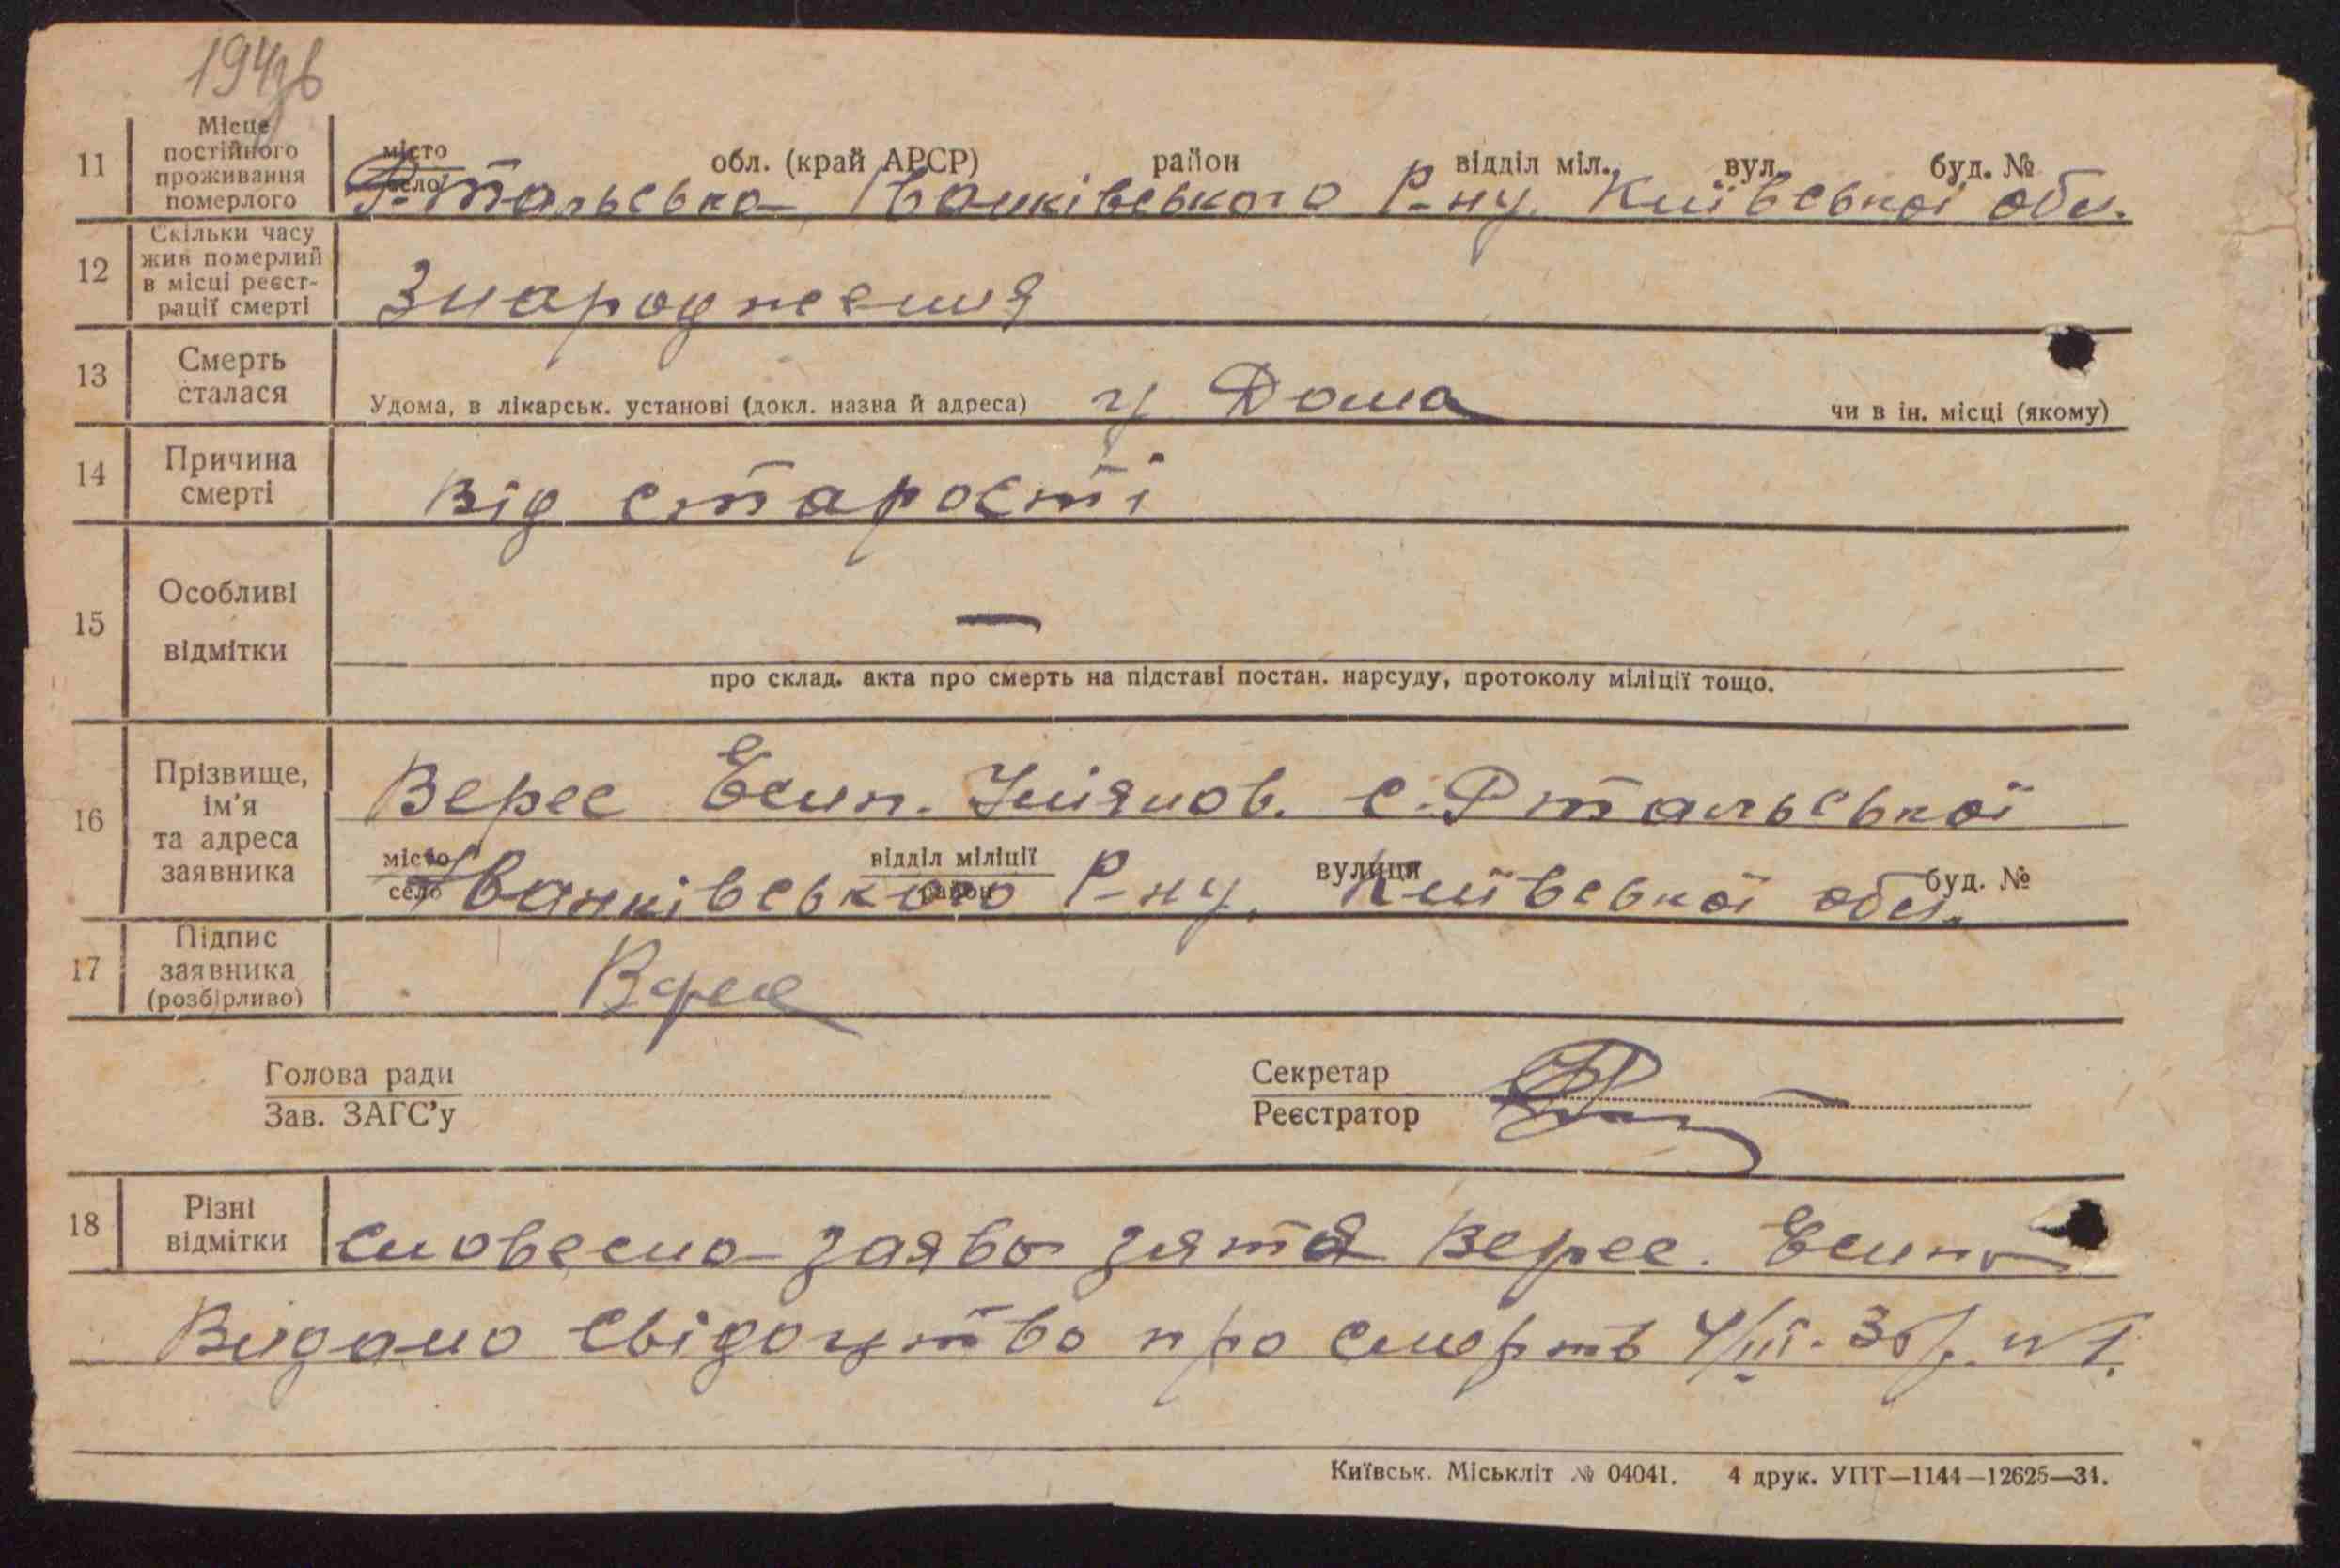 194зв
11 Місце постійного проживання померлого
місто село обл. (край АРСР) район відділ міл. вул. буд. №
Р-Тальська Іванківського Р-ну Київської обл.
12 Скільки часу жив померлий в місці реєстрації смерті
Знародження
13 Смерть сталася
Удома, в лікарськ. установі (докл. назва й адреса) у Дома чи в ін. місці (якому)
14 Причина смерті
Від старості
15 Особливі відмітки
—
про склад. акта про смерть на підставі постан. нарсуду, протоколу міліції тощо.
16 Прізвище, ім'я та адреса заявника
Верес Есип. Уліянов. с. Р Тальської
місто село відділ міліції район вулиця буд. №
Іванківського Р-ну, Київської обл.
17 Підпис заявника (розбірливо)
Верес
Голова ради Секретар
Зав. ЗАГС'у Реєстратор
18 Різні відмітки
Словесна заява зятя Верес. Есипа
Видано свідоцтво про смерть 4/III. 35 р. №1.
Київськ. Міськліт № 04041. 4 друк. УПТ—1144—12625—34.